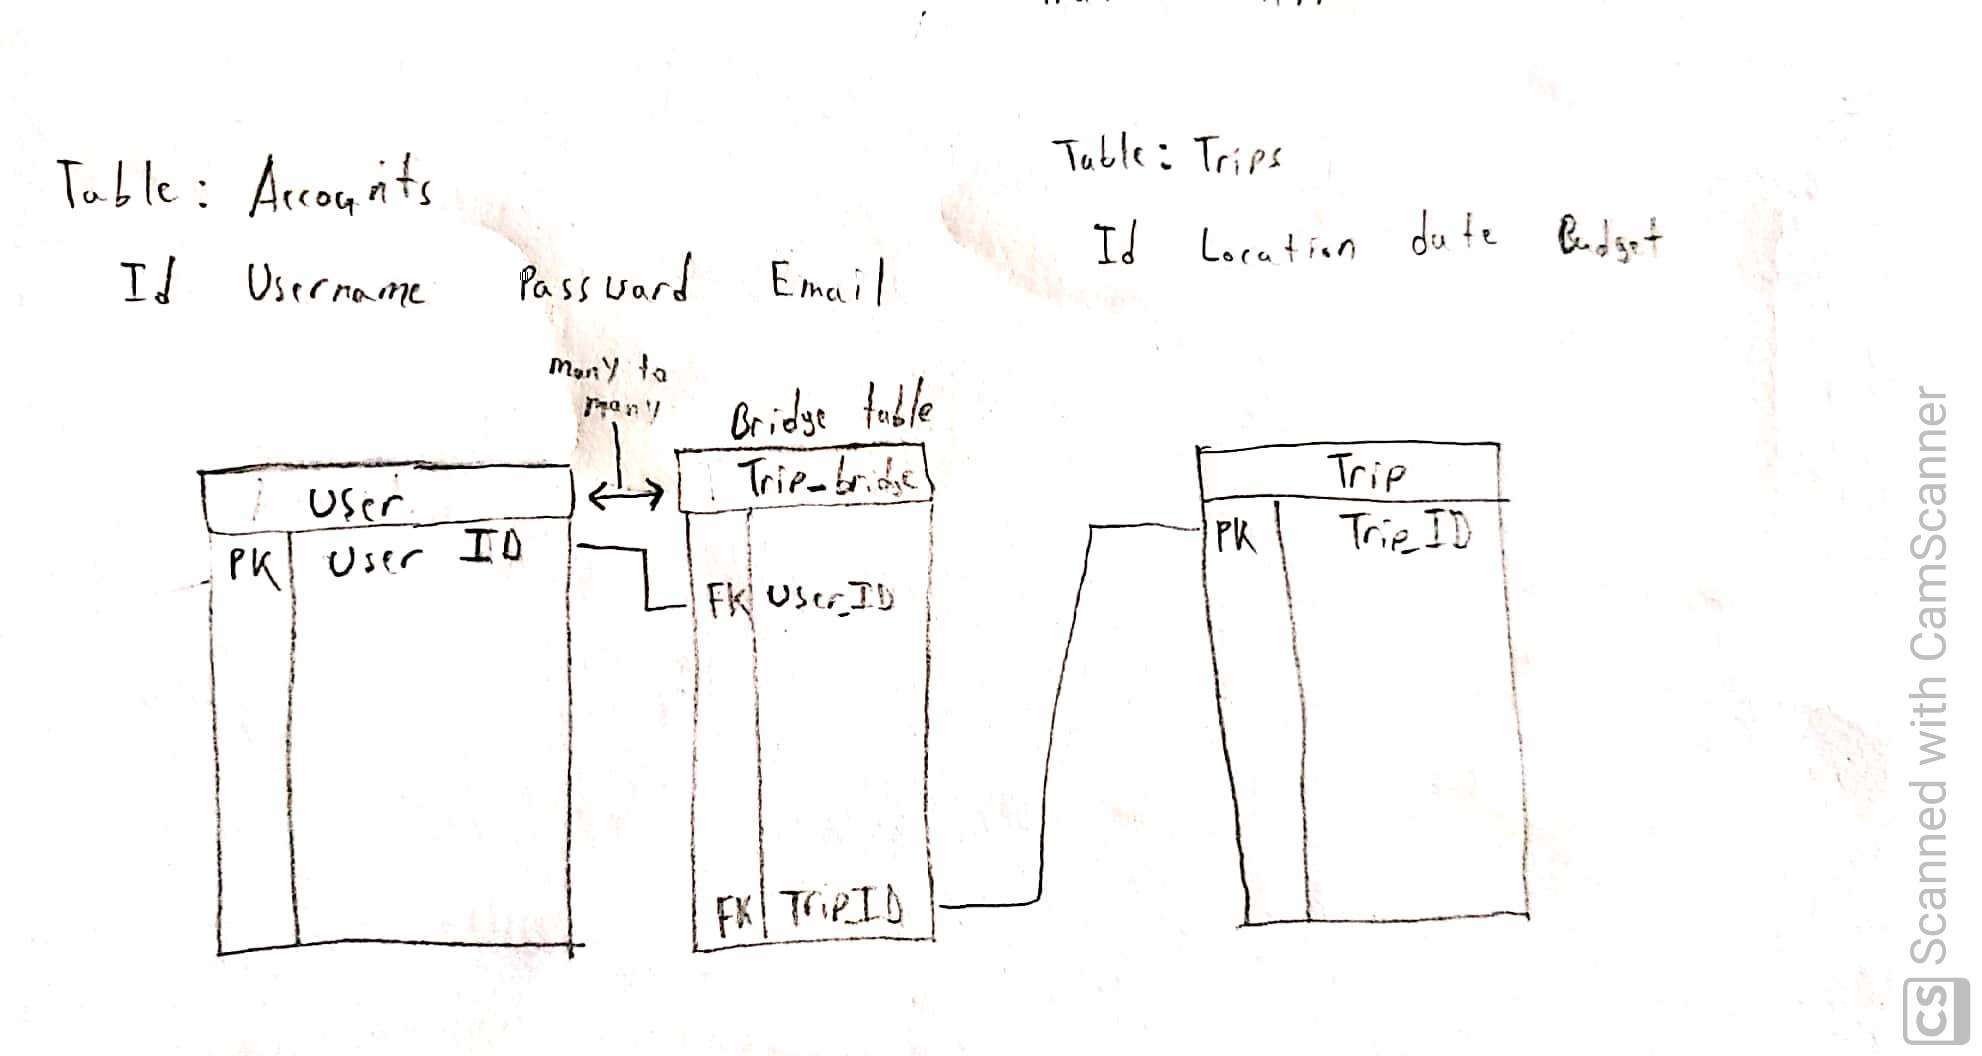 Table: Accounts
Id Username Password Email
Table: Trips
Id Location date Budget
many to
many
Bridge table
User
PK User ID
Trip_bridge
FK User_ID
FK Trip_ID
Trip
PK Trip_ID
CS Scanned with CamScanner